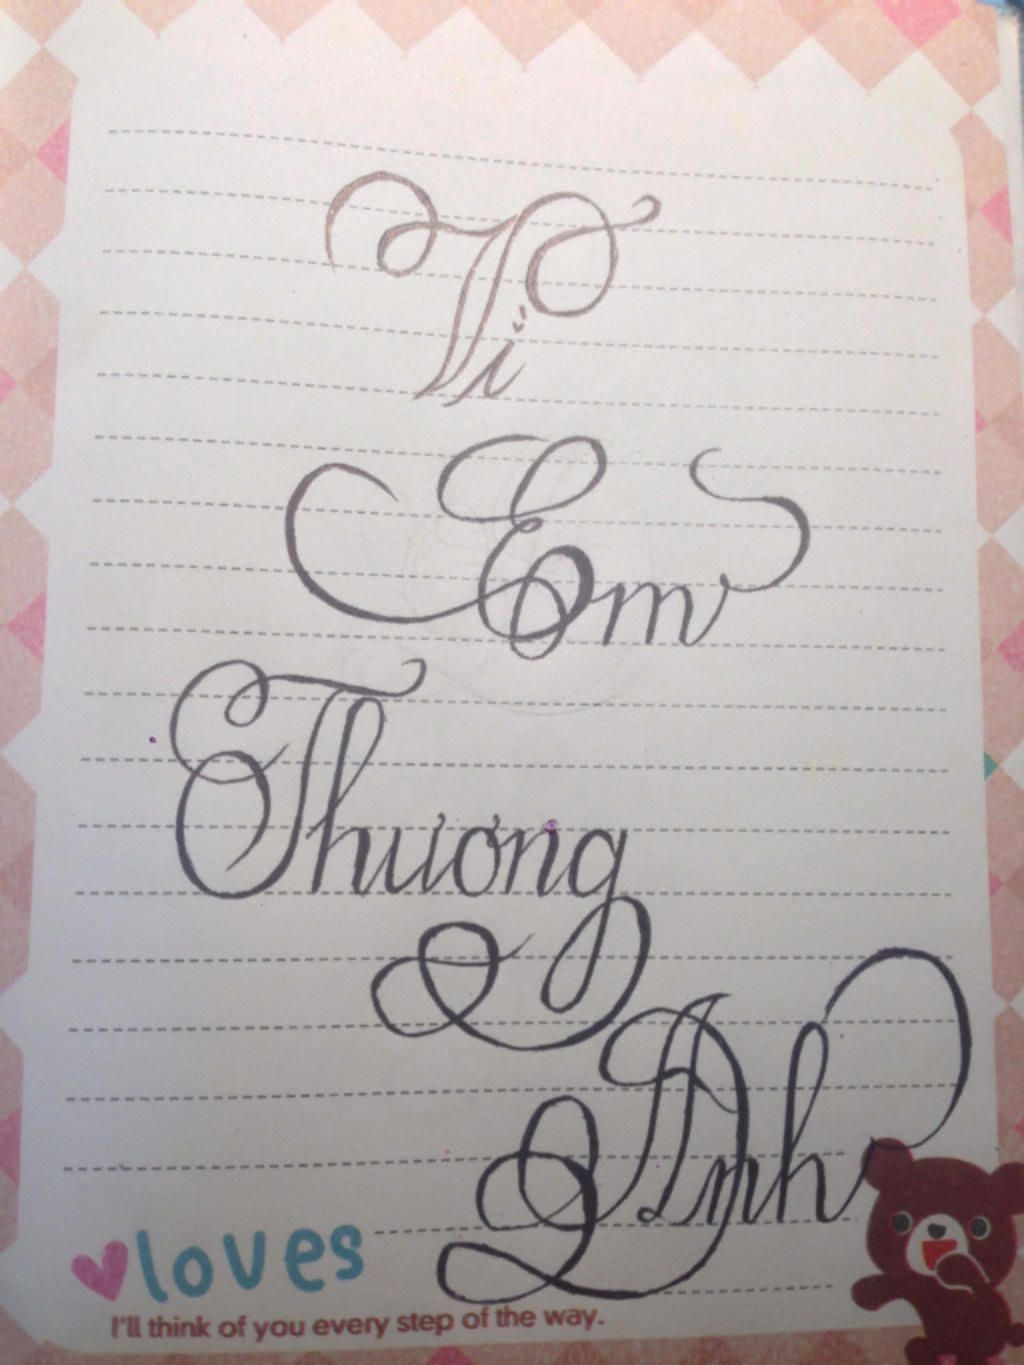 Vì
Em
Thương
Anh
loves
I'll think of you every step of the way.